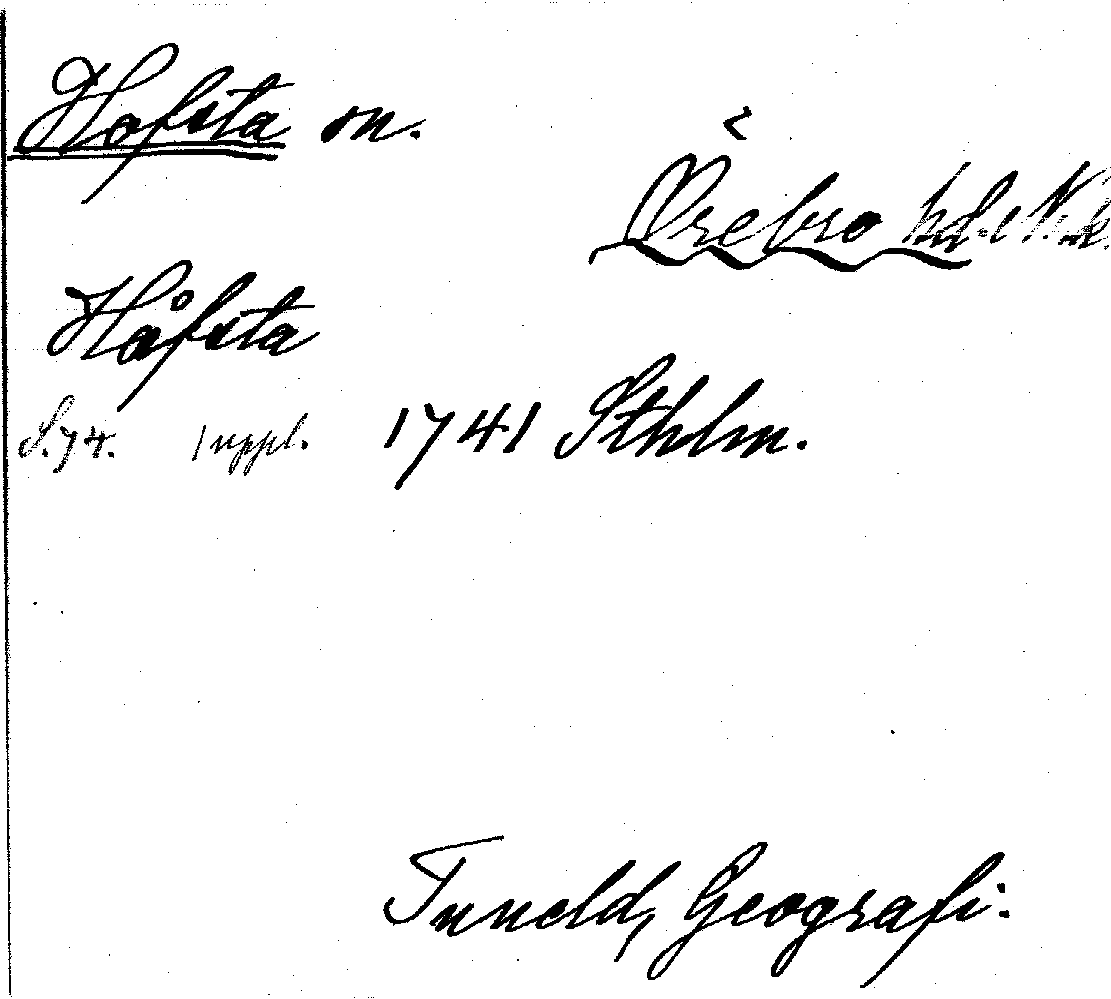 Hofsta sn.
Örebro hd. Nrk.
Håfsta
S. 74. 1 uppl. 1741 Sthlm.
Tuneld, Geografi.